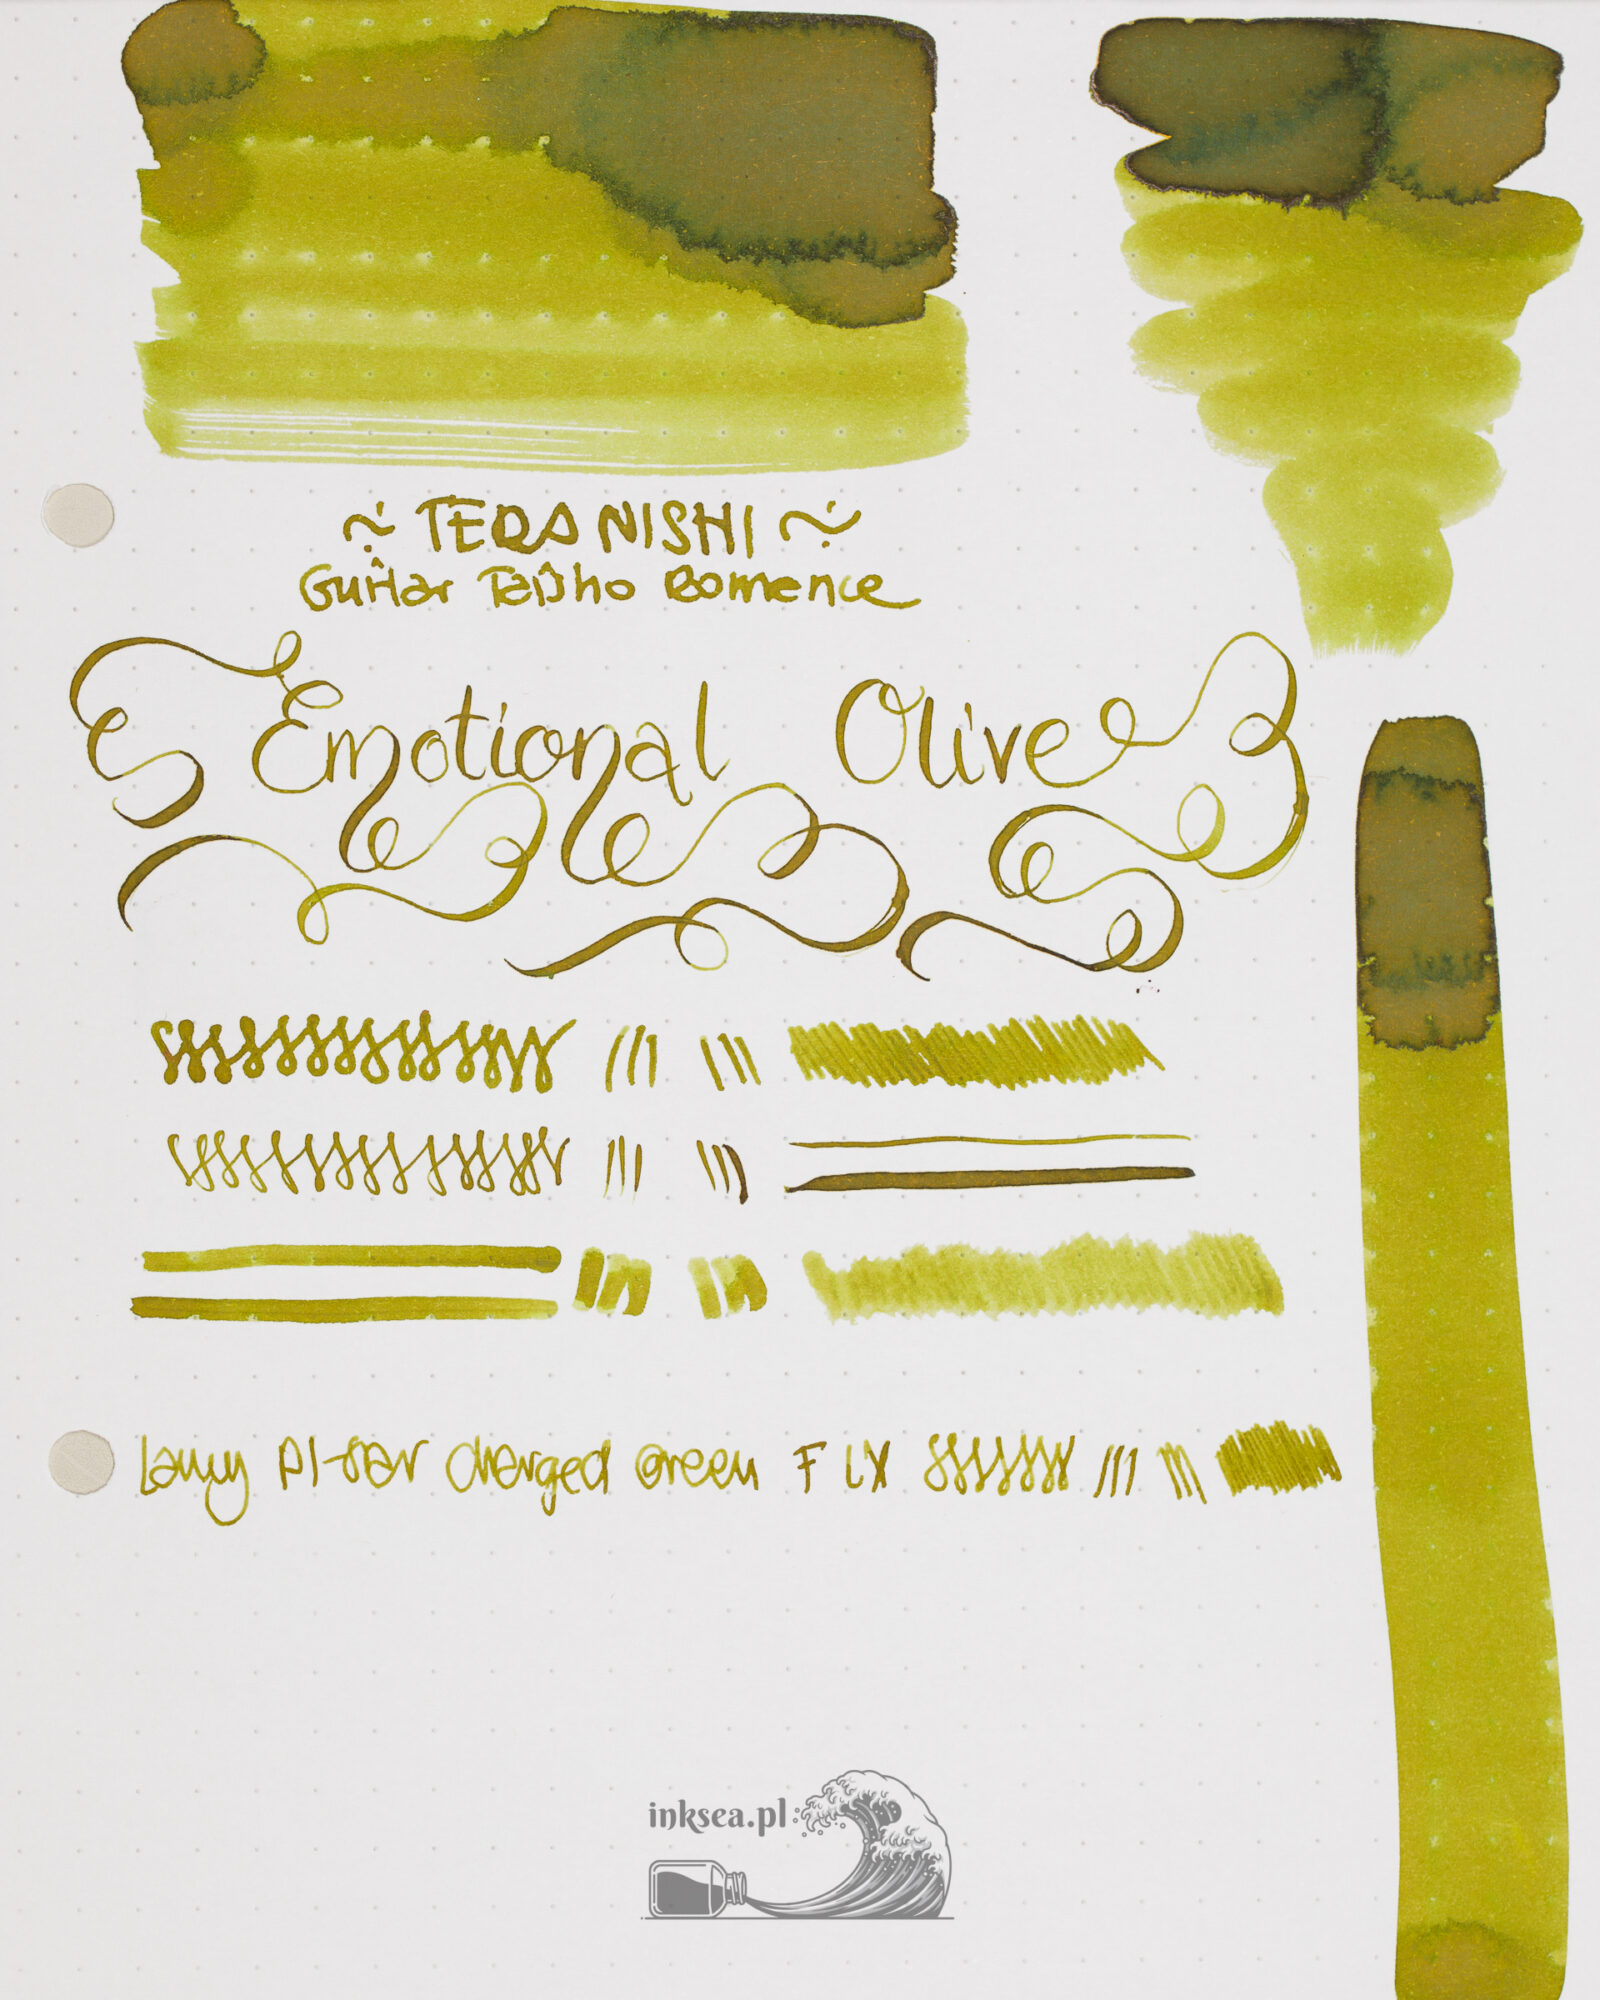 ~ TERA NISHI ~
Guitar Taisho Romance
Emotional Olive
Lamy Al-star Charged Green F LX
inksea.pl